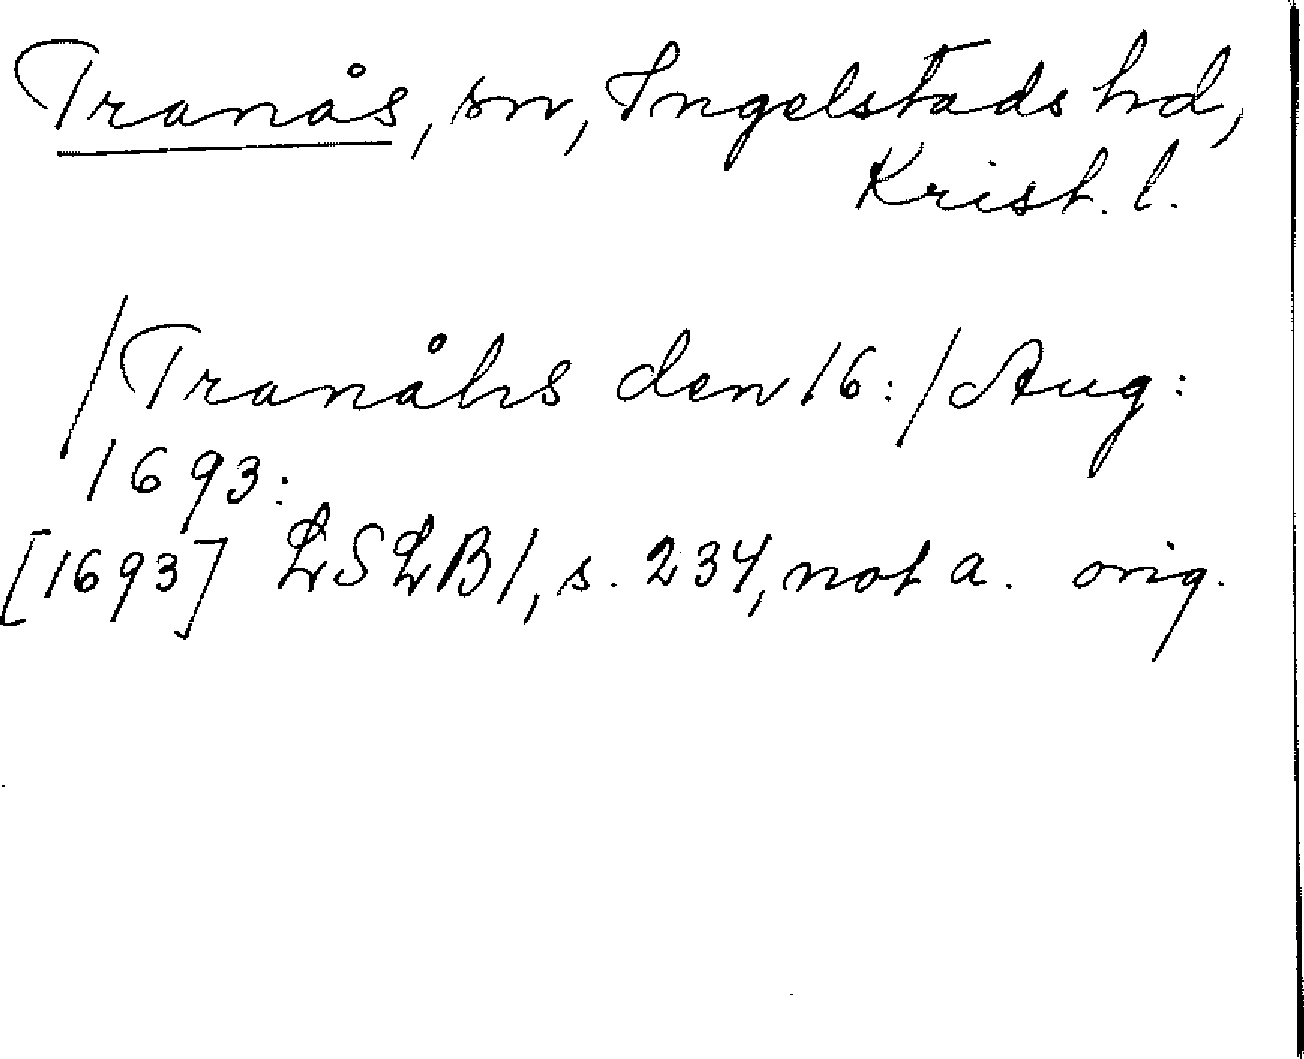 Tranås, sn, Ingelstads hd,
Krist. l.
/Tranåhs den 16:/ Aug:
1693:
[1693] LSLB 1, s. 234, not a. orig.